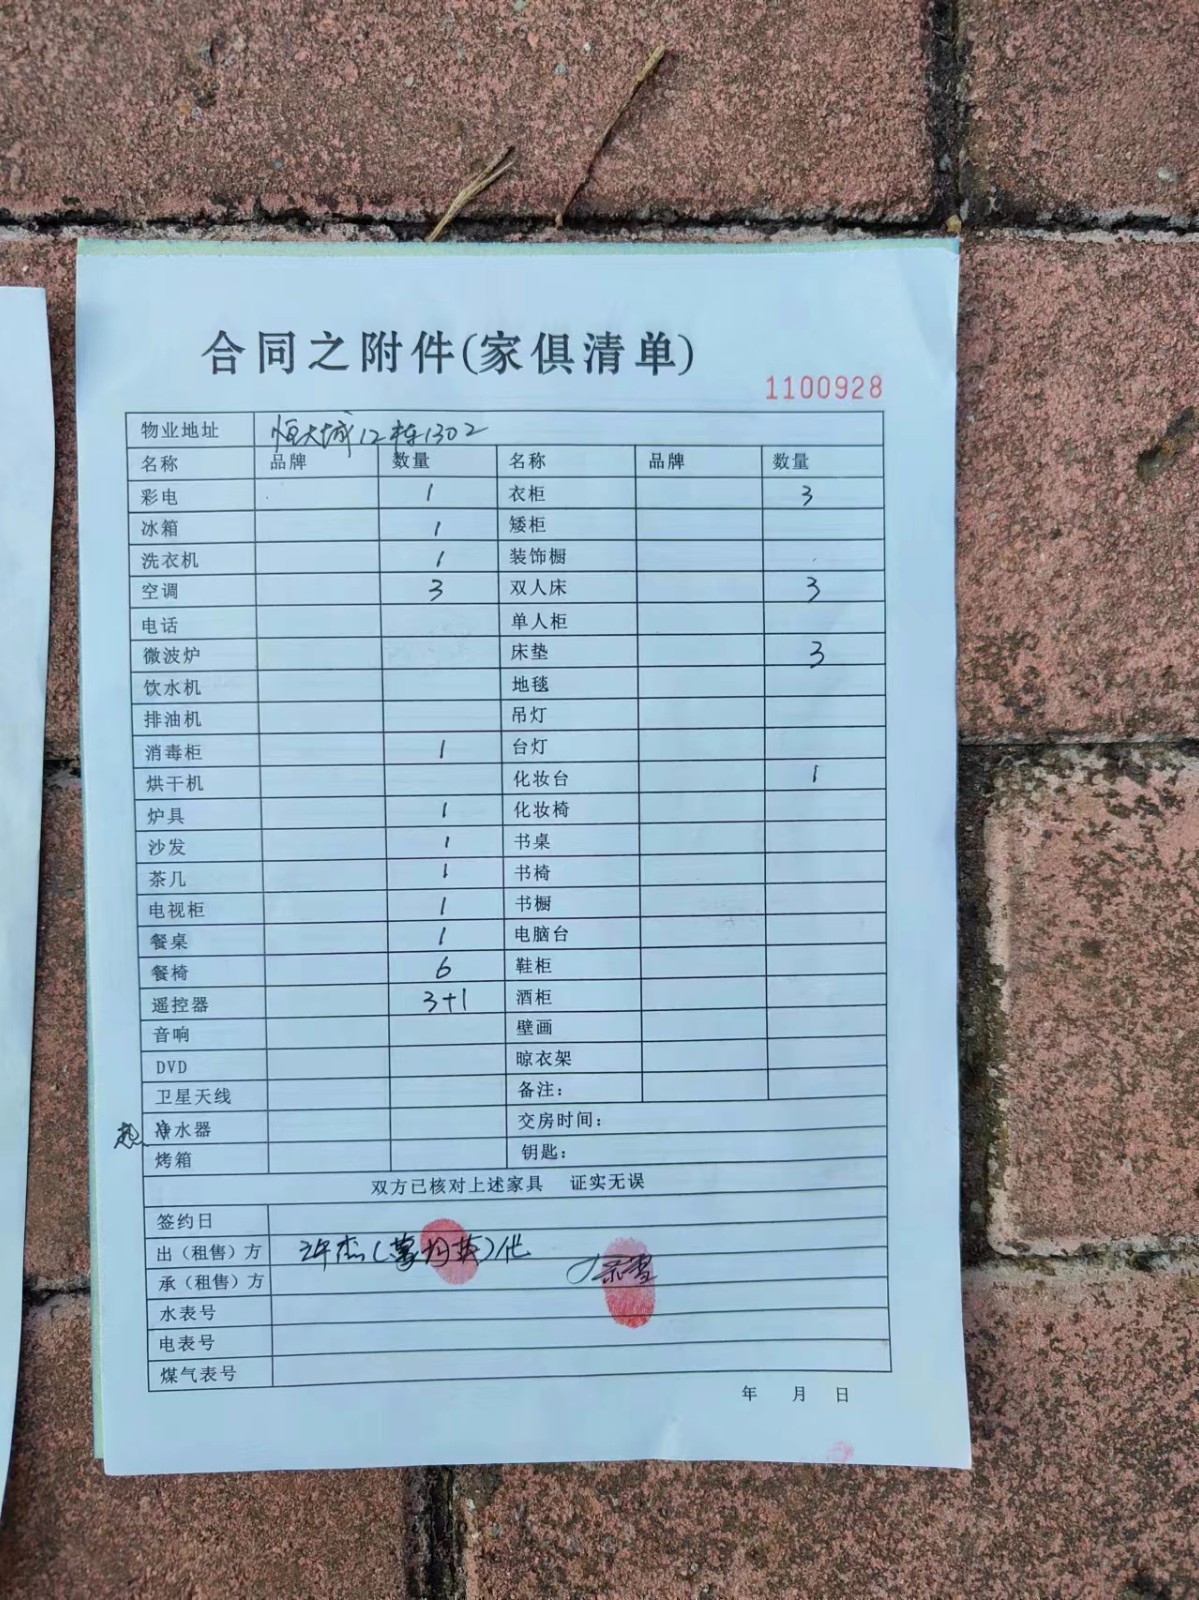 合同之附件(家俱清单)
1100928
物业地址 恒大城12栋1302
名称 品牌 数量 名称 品牌 数量
彩电 1 衣柜 3
冰箱 1 矮柜
洗衣机 1 装饰橱
空调 3 双人床 3
电话 单人柜
微波炉 床垫 3
饮水机 地毯
排油机 吊灯
消毒柜 1 台灯
烘干机 化妆台 1
炉具 1 化妆椅
沙发 1 书桌
茶几 1 书椅
电视柜 1 书橱
餐桌 1 电脑台
餐椅 6 鞋柜
遥控器 3+1 酒柜
音响 壁画
DVD 晾衣架
卫星天线 备注:
热 净水器 交房时间:
烤箱 钥匙:
双方已核对上述家具 证实无误
签约日
出（租售）方 许杰()代
承（租售）方
水表号
电表号
煤气表号
年 月 日